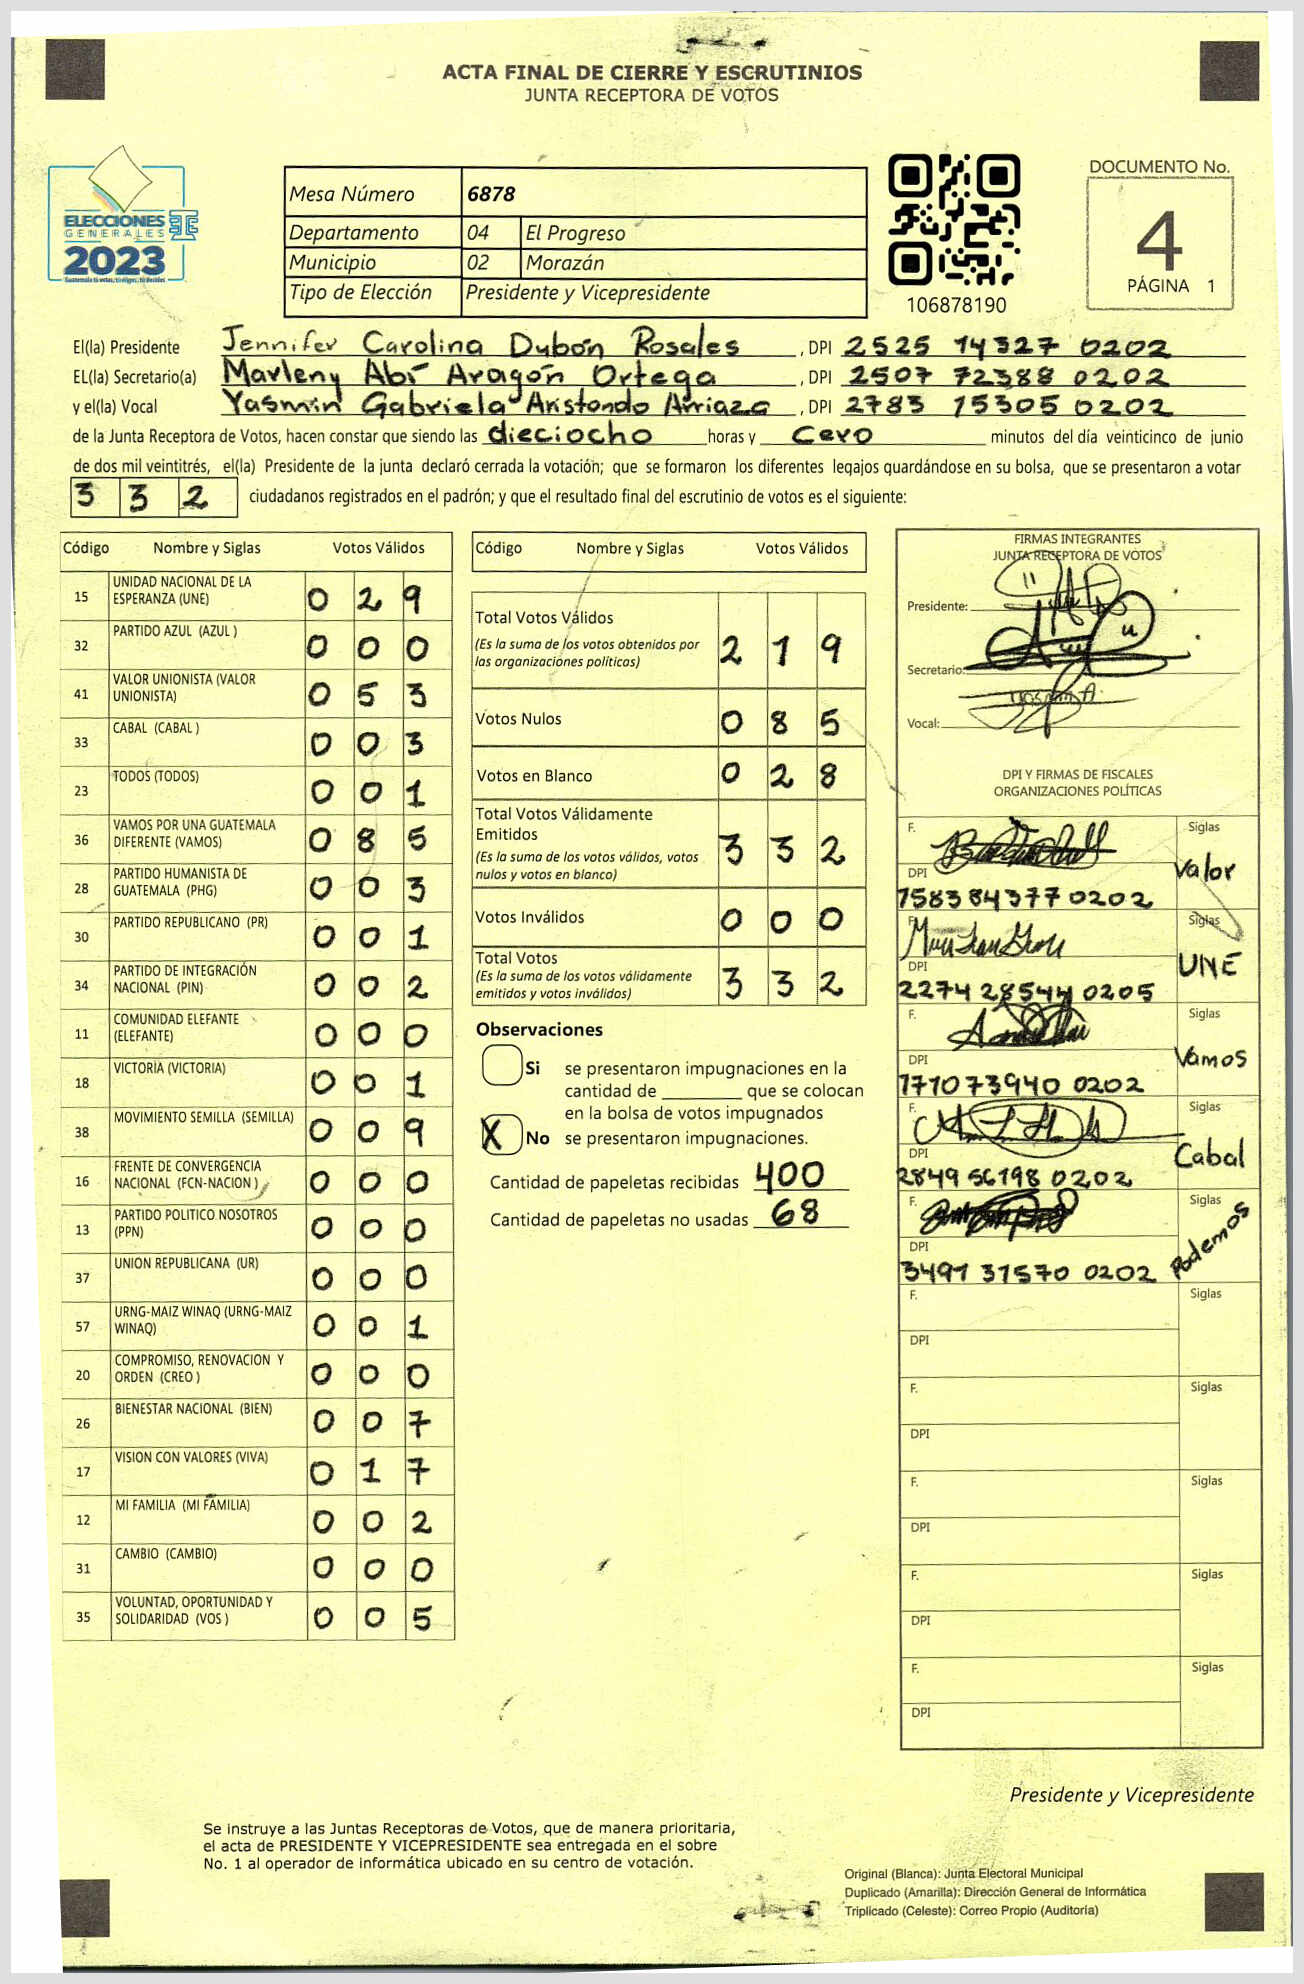 ACTA FINAL DE CIERRE Y ESCRUTINIOS
JUNTA RECEPTORA DE VOTOS
ELECCIONES
GENERALES
2023
Mesa Número 6878
Departamento 04 El Progreso
Municipio 02 Morazán
Tipo de Elección Presidente y Vicepresidente
106878190
DOCUMENTO No.
4
PÁGINA 1
El(la) Presidente Jennifer Carolina Dubón Rosales , DPI 2525 14327 0202
EL(la) Secretario(a) Marleny Abí Aragón Ortega , DPI 2507 72388 0202
y el(la) Vocal Yasmin Gabriela Aristondo Arriaza , DPI 2783 15305 0202
de la Junta Receptora de Votos, hacen constar que siendo las dieciocho horas y Cero minutos del día veinticinco de junio
de dos mil veintitrés, el(la) Presidente de la junta declaró cerrada la votación; que se formaron los diferentes legajos guardándose en su bolsa, que se presentaron a votar
3 3 2 ciudadanos registrados en el padrón; y que el resultado final del escrutinio de votos es el siguiente:
Código Nombre y Siglas Votos Válidos
15 UNIDAD NACIONAL DE LA ESPERANZA (UNE) 0 2 9
32 PARTIDO AZUL (AZUL ) 0 0 0
41 VALOR UNIONISTA (VALOR UNIONISTA) 0 5 3
33 CABAL (CABAL ) 0 0 3
23 TODOS (TODOS) 0 0 1
36 VAMOS POR UNA GUATEMALA DIFERENTE (VAMOS) 0 8 5
28 PARTIDO HUMANISTA DE GUATEMALA (PHG) 0 0 3
30 PARTIDO REPUBLICANO (PR) 0 0 1
34 PARTIDO DE INTEGRACIÓN NACIONAL (PIN) 0 0 2
11 COMUNIDAD ELEFANTE (ELEFANTE) 0 0 0
18 VICTORIA (VICTORIA) 0 0 1
38 MOVIMIENTO SEMILLA (SEMILLA) 0 0 9
16 FRENTE DE CONVERGENCIA NACIONAL (FCN-NACION ) 0 0 0
13 PARTIDO POLITICO NOSOTROS (PPN) 0 0 0
37 UNION REPUBLICANA (UR) 0 0 0
57 URNG-MAIZ WINAQ (URNG-MAIZ WINAQ) 0 0 1
20 COMPROMISO, RENOVACION Y ORDEN (CREO ) 0 0 0
26 BIENESTAR NACIONAL (BIEN) 0 0 7
17 VISION CON VALORES (VIVA) 0 1 7
12 MI FAMILIA (MI FAMILIA) 0 0 2
31 CAMBIO (CAMBIO) 0 0 0
35 VOLUNTAD, OPORTUNIDAD Y SOLIDARIDAD (VOS ) 0 0 5
Código Nombre y Siglas Votos Válidos
Total Votos Válidos 2 1 9
(Es la suma de los votos obtenidos por
las organizaciones políticas)
Votos Nulos 0 8 5
Votos en Blanco 0 2 8
Total Votos Válidamente
Emitidos 3 3 2
(Es la suma de los votos válidos, votos
nulos y votos en blanco)
Votos Inválidos 0 0 0
Total Votos 3 3 2
(Es la suma de los votos válidamente
emitidos y votos inválidos)
Observaciones
Si se presentaron impugnaciones en la
cantidad de ________ que se colocan
en la bolsa de votos impugnados
X No se presentaron impugnaciones.
Cantidad de papeletas recibidas 400
Cantidad de papeletas no usadas 68
FIRMAS INTEGRANTES
JUNTA RECEPTORA DE VOTOS
Presidente:
Secretario:
Vocal:
DPI Y FIRMAS DE FISCALES
ORGANIZACIONES POLÍTICAS
F. Siglas
Valor
DPI
1583 84377 0202
F. Siglas
UNE
DPI
2274 28544 0205
F. Siglas
Vamos
DPI
1710 73940 0202
F. Siglas
Cabal
DPI
2849 56198 0202
F. Siglas
Podemos
DPI
3491 31570 0202
F. Siglas
DPI
F. Siglas
DPI
F. Siglas
DPI
F. Siglas
DPI
F. Siglas
DPI
Presidente y Vicepresidente
Se instruye a las Juntas Receptoras de Votos, que de manera prioritaria,
el acta de PRESIDENTE Y VICEPRESIDENTE sea entregada en el sobre
No. 1 al operador de informática ubicado en su centro de votación.
Original (Blanca): Junta Electoral Municipal
Duplicado (Amarilla): Dirección General de Informática
Triplicado (Celeste): Correo Propio (Auditoría)